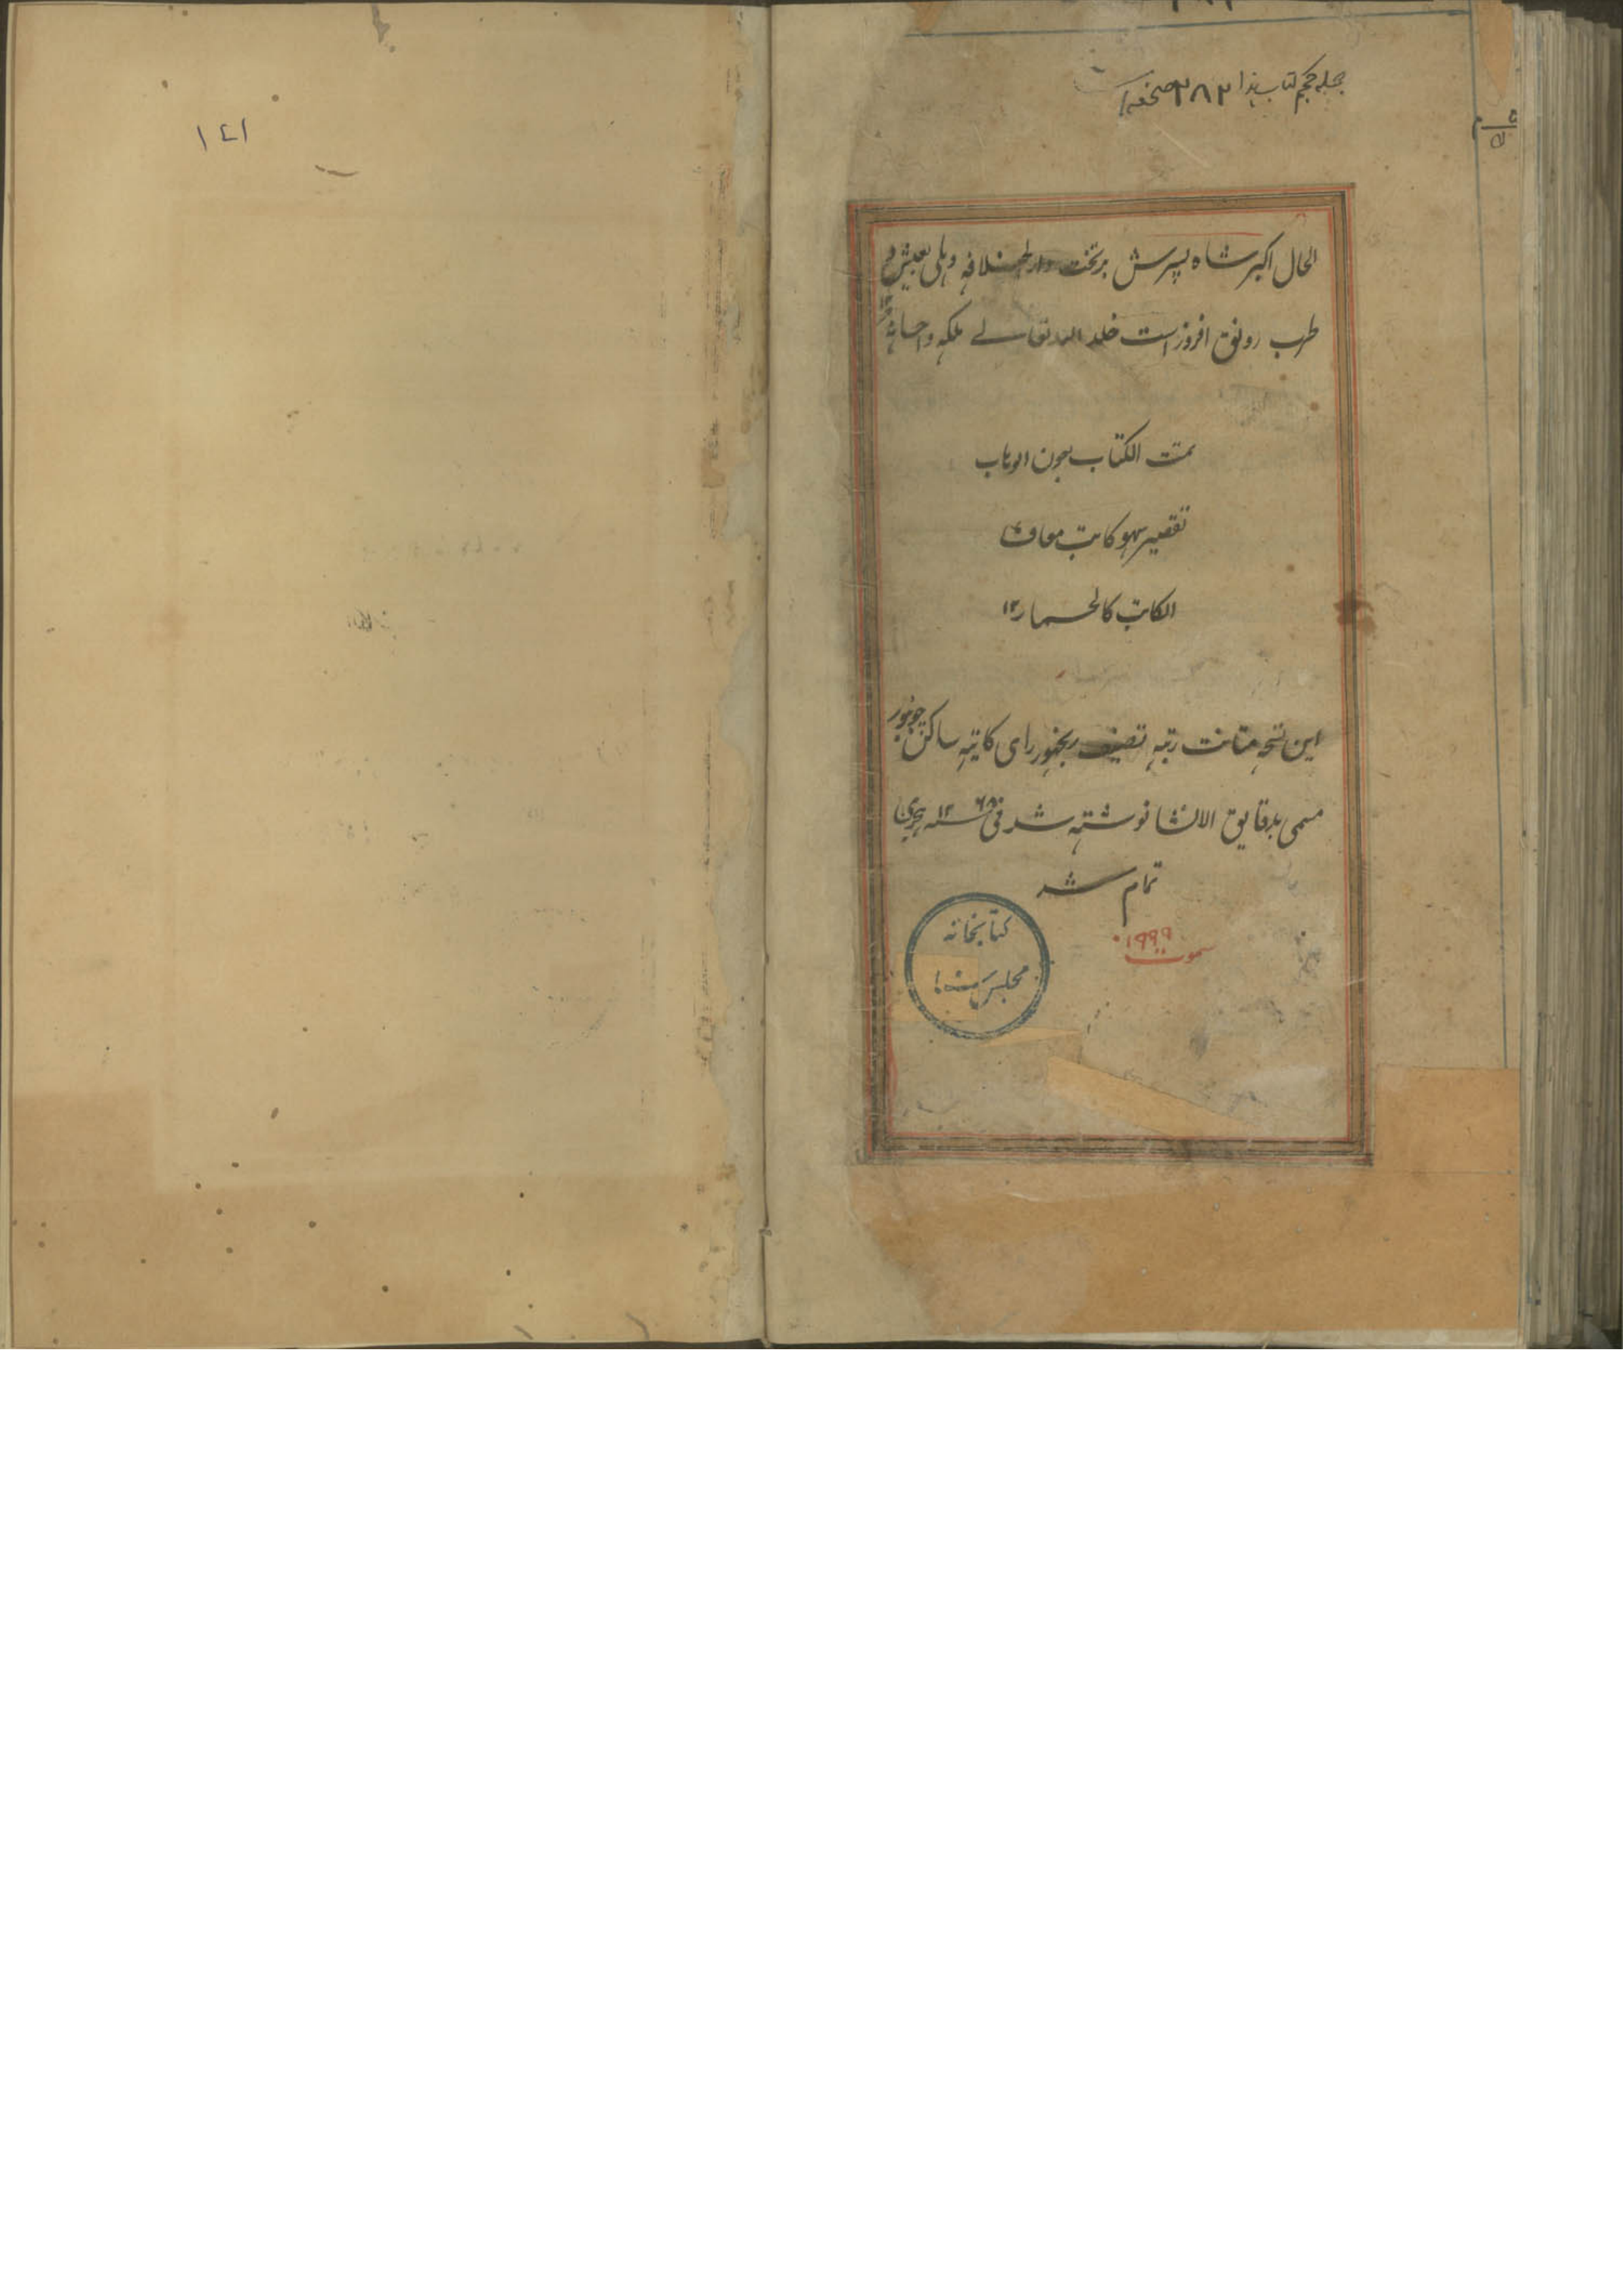 جمله حجم کتاب هذا ۲۸۲ صفحه است
الحال اکبر شاه پسرش برتخت دار الخلافه دهلی بعیش و
طرب رونق افروز است خلد الله تعالے ملکه و احسانه ۱۲
تمت الکتاب بعون الوهاب
تقصیر سهو کاتب معاف
الکاتب کالحمار ۱۲
این نسخه متانت رتبه تصنیف رنجهور رای کایته ساکن جونپور
مسمی بدقایق الانشا نوشته شد فی سنه ۱۲ هجری
تمام شد
سموت
کتابخانه
مجلس سنا
۱۴۱